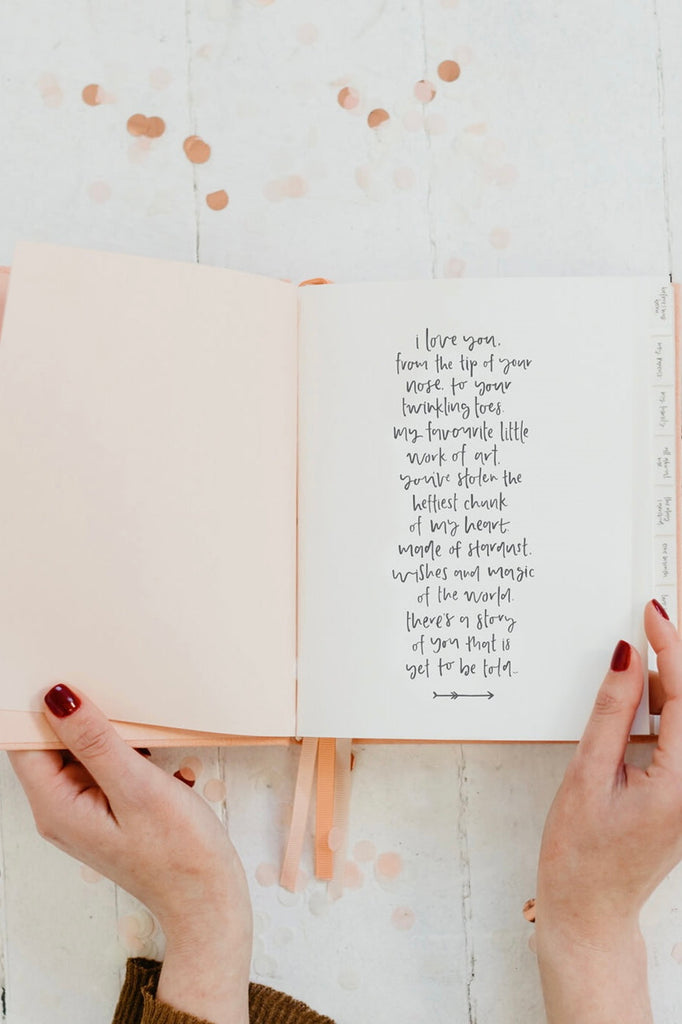 i love you,
from the tip of your
nose, to your
twinkling toes.
my favourite little
work of art,
you've stolen the
heftiest chunk
of my heart.
made of stardust,
wishes and magic
of the world.
there's a story
of you that is
yet to be told...
all about
me